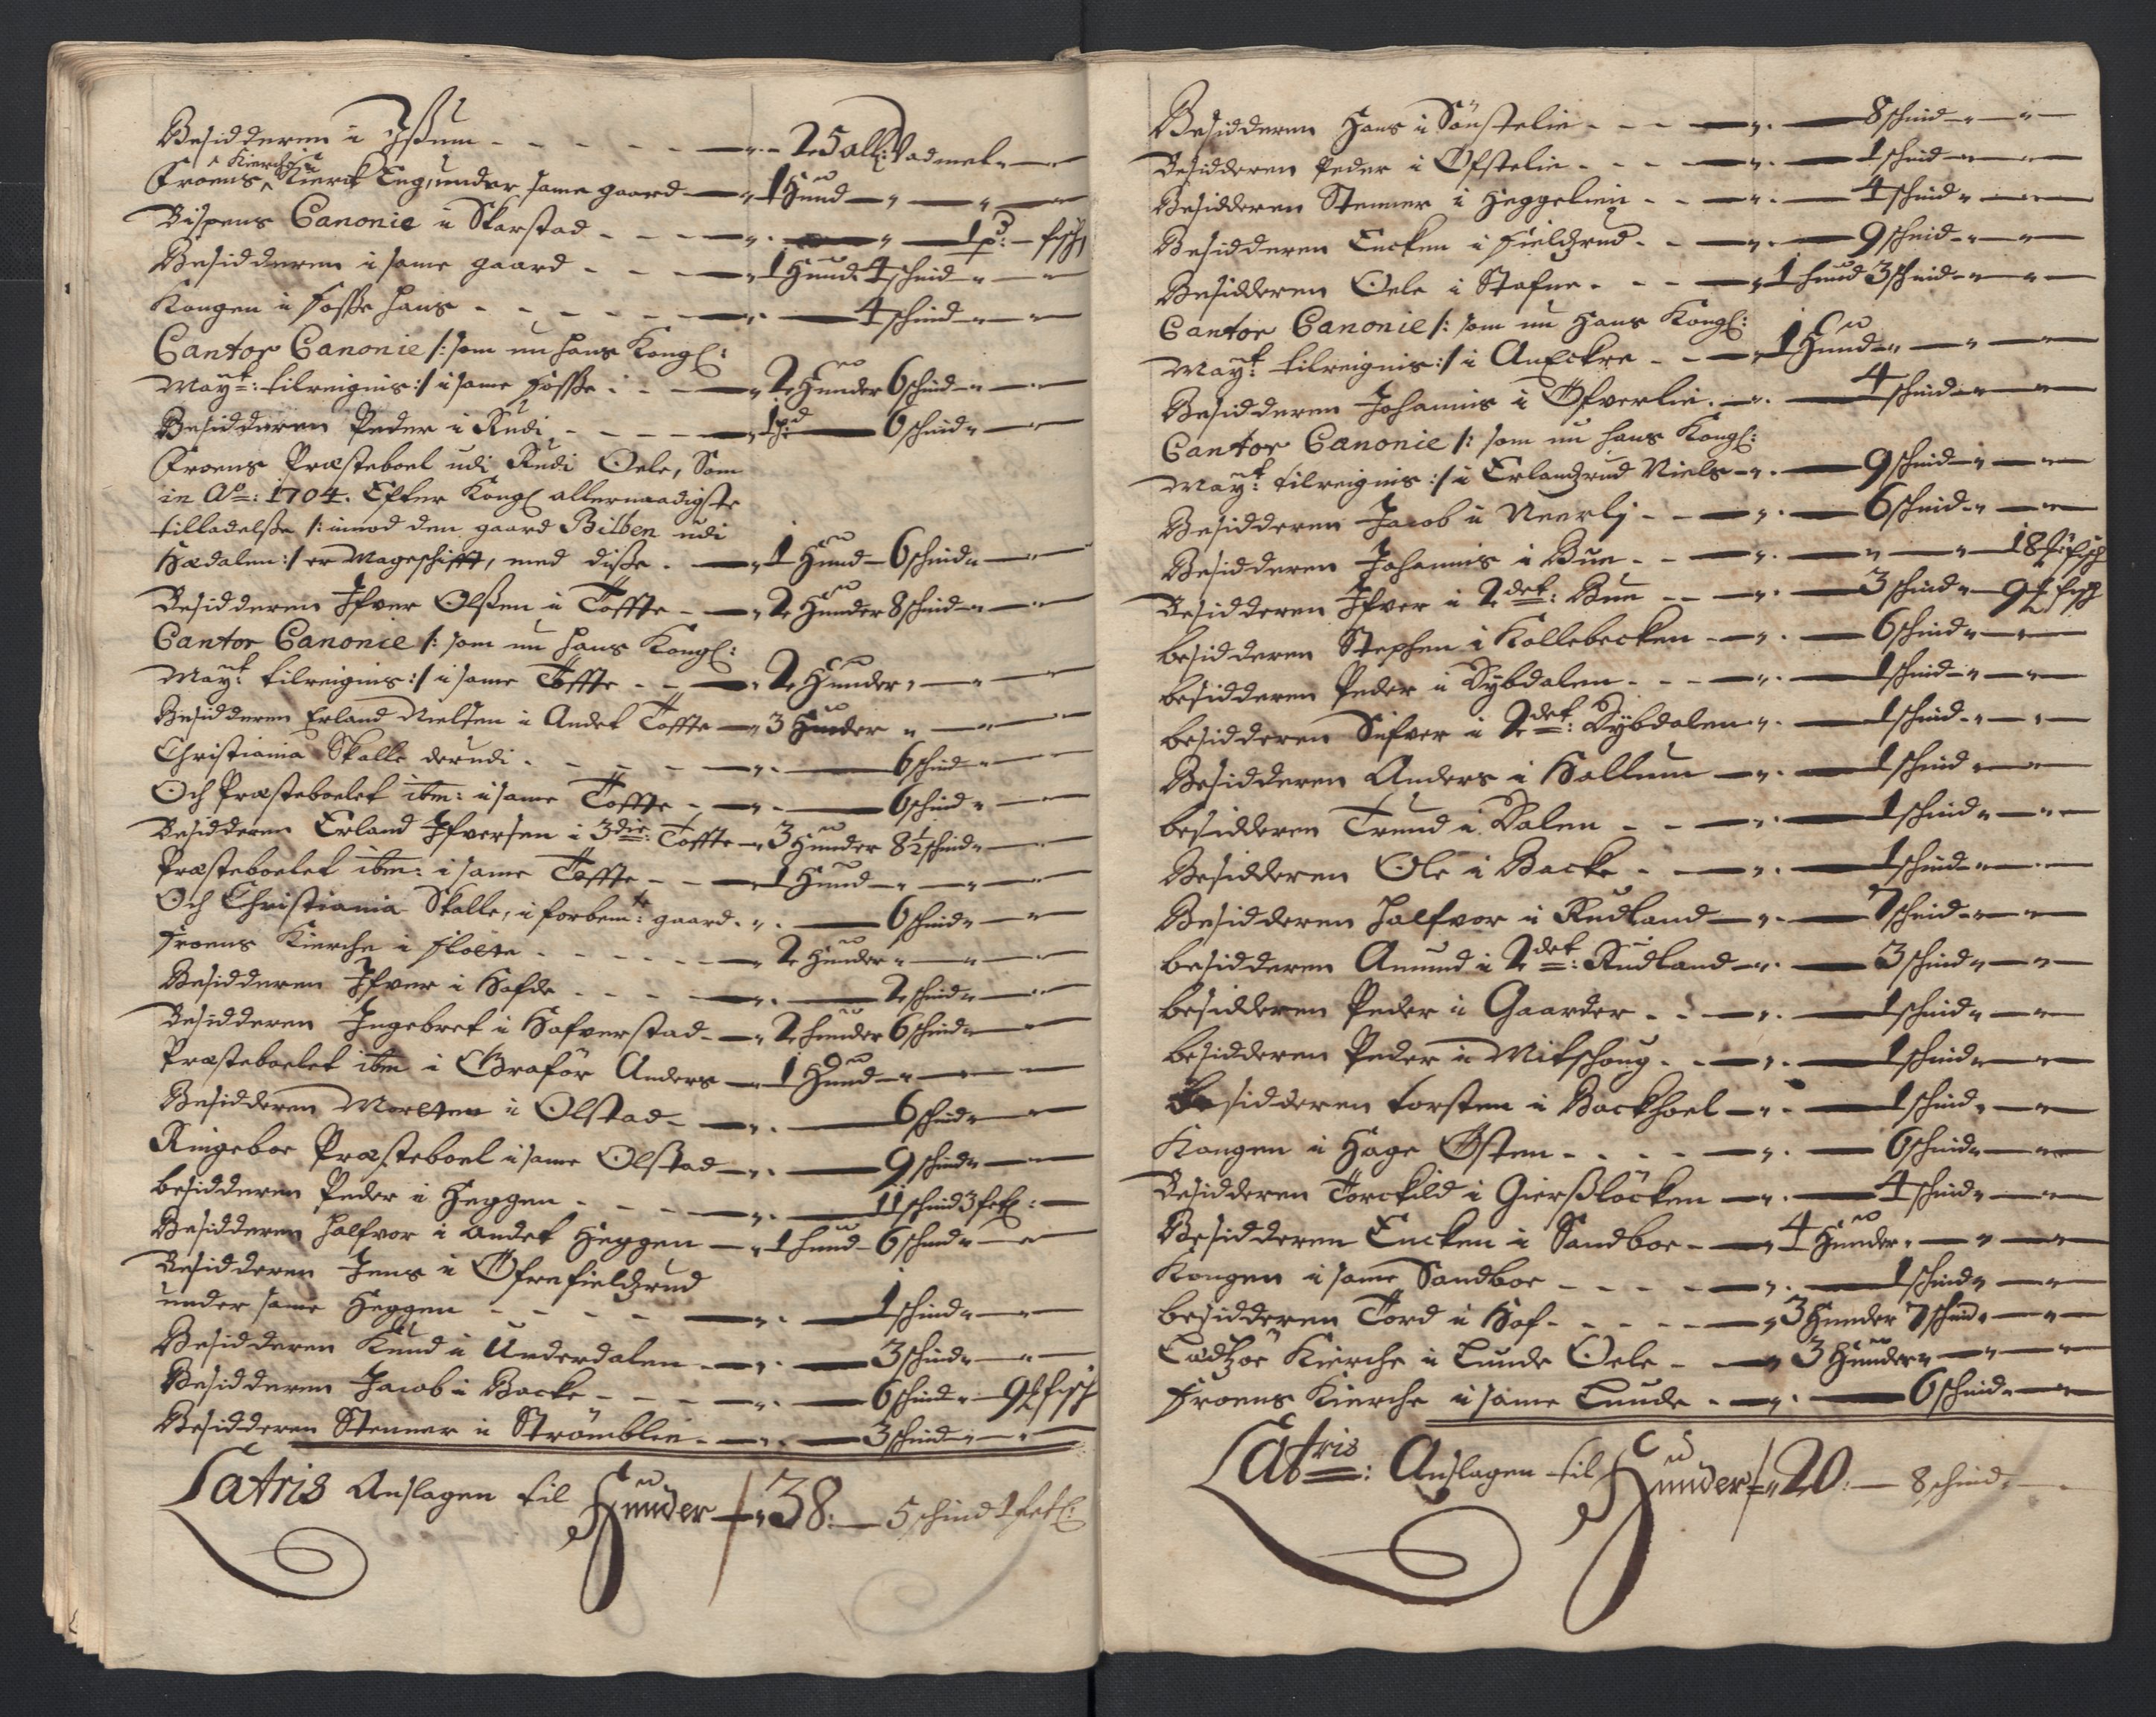 Besidderen i Ißum - - - - - - „ - 25 all: Vadmel - „ -
Froens Kierche i Kierck Eng, under same gaard - „ 1 Hund - „ - „ -
Bispens Canonie i Skarstad - - - „ - „ - 1 pd: - fisch
Besidderen i same gaard - - - „ 1 Hund 4 schind - „ -
Kongen i Foße Hans - - - - - „ - 4 schind - „ -
Cantor Canonie /: som nu Hans Kongl:
Mayt: tilreignis :/ i same Foße - - - „ 2 Hunder 6 schind - „ -
Besidderen Peder i Rudi - - - - „ 1 pd: - 6 schind „ -
Froens Præsteboel udi Rudi Oele, Som
in Ao: 1704. Efter Kongl allernaadigste
tilladelße /: imod den gaard Bilben udi
Hædalen :/ er Mageschifft, med diße - „ 1 Hund - 6 schind „ -
Besidderen Ifver Olßen i Toffte - - „ 2 Hunder 8 schind - „ -
Cantor Canonie /: som nu Hans Kongl:
Mayt: tilreignis :/ i same Toffte - - „ 2 Hunder „ - „ -
Besidderen Erland Nielsen i Andet Toffte - „ 3 Hunder „ - „ -
Christiania Skolle derudi - - - - „ - 6 schind - „ -
Och Præsteboelet ibm: i same Toffte - „ - 6 schind „ -
Besidderen Erland Ifversen i 3die: Toffte - „ 3 Hunder 8½ schind „ -
Præsteboelet ibm: i same Toffte - - „ 1 Hund - „ - „ -
Och Christiania Skolle, i forbemte: gaard - „ - 6 schind „ -
Froens Kierche i Floete - - - - - „ 2 Hunder „ - „ -
Besidderen Ifver i Hofde - - - - „ - 2 schind „ -
Besidderen Ingebret i Hafverstad - „ 2 hunder 6 schind „ -
Præsteboelet ibm i Grafør Anders - „ 1 Hund - „ - „ -
Besidderen Morten i Olstad - „ - 6 schind „ -
Ringeboe Præsteboel i same Olstad - „ - 9 schind „ -
besidderen Peder i Heggen - - - „ - 11 schind 3 fetl: -
Besidderen Halfvor i andet Heggen - „ 1 hund - 6 schind „ -
Besidderen Jens i Øfrefieldzrud
under same Heggen - - - - „ - 1 schind „ -
Besidderen Knud i Underdalen - „ - 3 schind „ -
Besidderen Jacob i Backe - - - „ - 6 schind „ - 9 ℔ fisch
Besidderen Stenner i Strömblie - „ - 3 schind - „ -
Latris Anslagen til Hunder - „ 38: - 5 schind 1 fetl:
Besidderen Hans i Sönstelie - - - „ - 8 schind - „ -
Besidderen Peder i Øfstelie - - - „ - 1 schind - „ -
Besidderen Stenner i Heggelien - - „ - 4 schind „ -
Besidderen Encken i Fieldzrud - - „ - 9 schind - „ -
Besidderen Oele i Stafne - - - „ 1 hund 3 schind - „ -
Cantor Canonie /: som nu Hans Kongl:
Mayt: tilreignis :/ i AnEckre - - „ 1 Hund - „ - „ -
Besidderen Johannis i Øfverlie - „ - 4 schind - „ -
Cantor Canonie /: som nu Hans Kongl:
Mayt: tilreignis :/ i Erlandzrud Niels - „ - 9 schind - „ -
Besidderen Jacob i Neerlj - - - „ - 6 schind - „ -
Besidderen Johannis i Bue - - - „ - „ - „ - 18 ℔ fisch
Besidderen Ifver i 2det: Bue - - - „ - 3 schind „ - 9 ℔ fisch
besidderen Stephen i Kollebecken - „ - 6 schind „ -
besidderen Peder i Dybdalen - - - „ - 1 schind - „ -
besidderen Sifver i 2det: Dybdalen „ - 1 schind - „ -
Besidderen Anders i Hallum - „ - 1 schind „ -
besidderen Trund i Dalen - - - „ - 1 schind „ -
Besidderen Ole i Backe - - „ - 1 schind „ -
Besidderen Halfvor i Rudland - „ - 7 schind - „ -
besidderen Amund i 2det: Rudland - „ - 3 schind „ -
besidderen Peder i Gaarder - - „ - 1 schind „ -
besidderen Peder i Mitschoug - - „ - 1 schind „ -
Besidderen torsten i Backhoel - „ - 1 schind „ -
Kongen i Hage Østen - - - - „ - 6 schind „ -
Besidderen Torckild i Gierßlöcken - „ - 4 schind „ -
Besidderen Encken i Sandboe - „ 4 Hunder „ - „ -
Kongen i same Sandboe - - - - „ - 1 schind „ -
besidderen Tord i Hof - - - - „ 3 Hunder 7 schind „ -
Lædzöe Kierche i Lunde Oele - - „ 3 Hunder „ - „ -
Froens Kierche i same Lunde - „ - 6 schind „ -
Latris: Anslagen til Hunder - „ 20: - 8 schind „ -